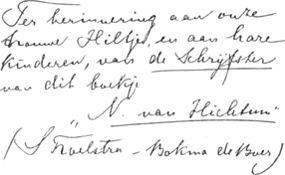 Ter herinnering aan onze
trouwe Hiltje, en aan hare
kinderen, van de Schrijfster
van dit boekje
„N. van Hichtum"
(S Troelstra - Bokma de Boer)